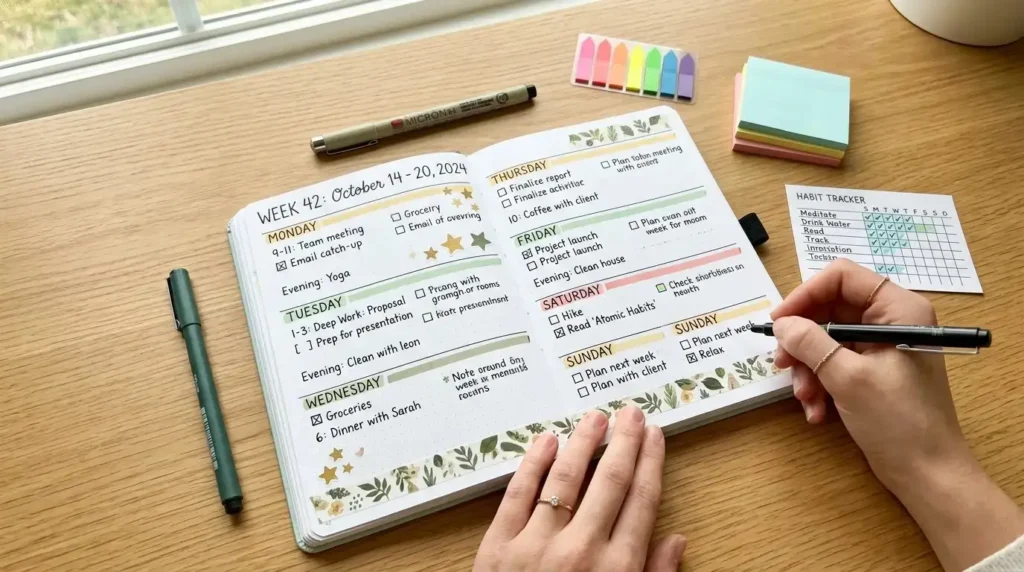 WEEK 42: October 14-20, 2024
MONDAY
9-11: Team meeting
Email catch-up
Grocery
Email of
Evening: Yoga
TUESDAY
1-3: Deep Work: Proposal
[ ] Prep for presentation
with
or rooms
Evening: Clean with leon
WEDNESDAY
Groceries
6: Dinner with Sarah
* Note around
week in
THURSDAY
Finalize report
Finalize
10: Coffee with client
Plan meeting
with
FRIDAY
Project launch
Project launch
Evening: Clean house
Plan out
week for
SATURDAY
Hike
Read 'Atomic Habits'
Check
SUNDAY
Plan next week
Plan with client
SUNDAY
Plan next week
Relax
MICRON
HABIT TRACKER
S M T W T F S S D
Meditate
Drink Water
Read
Track